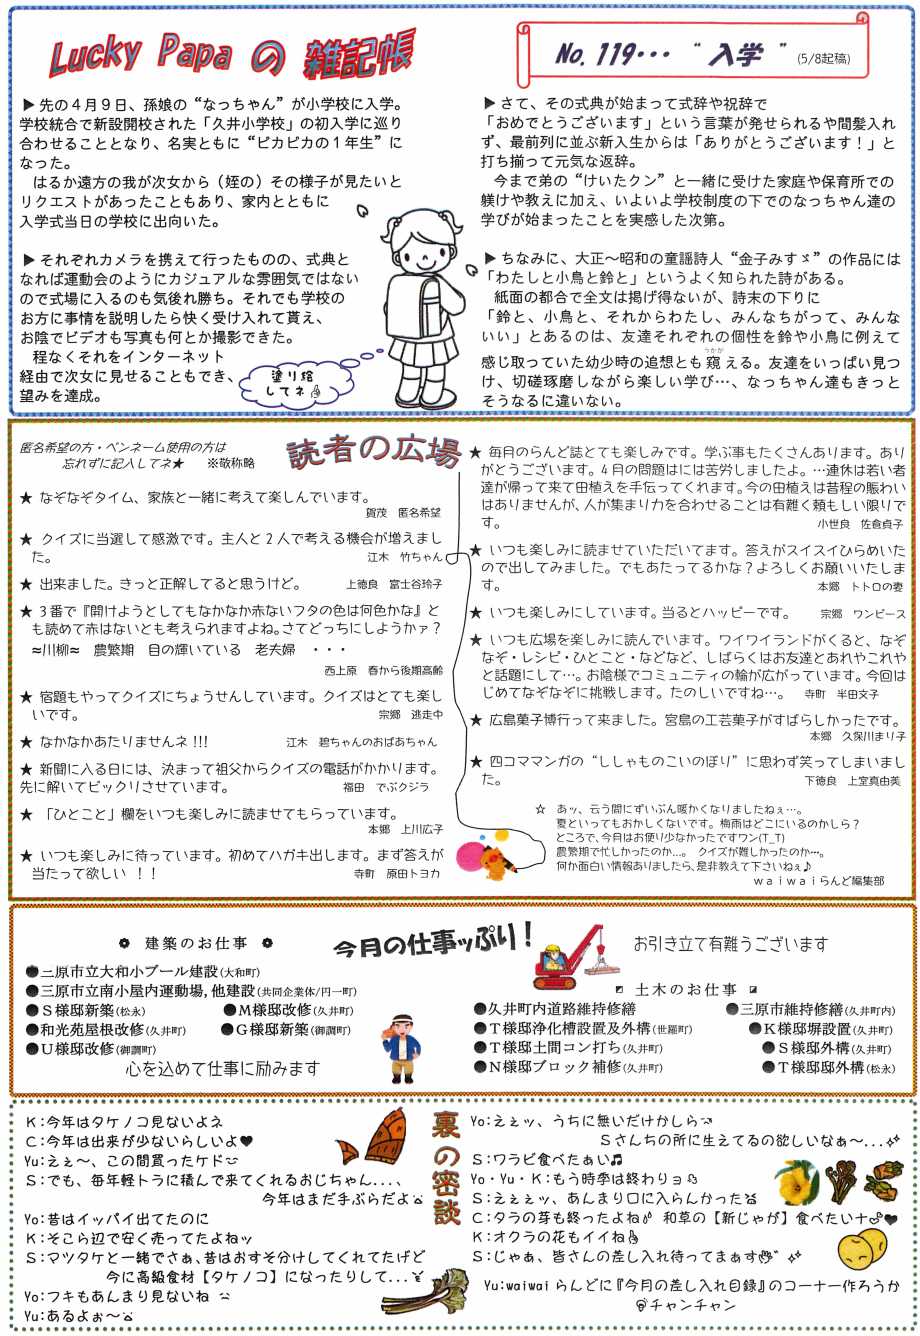 Lucky Papa の 雑記帳
No. 119・・・ “ 入学 ” (5/8起稿)
▶ 先の４月９日、孫娘の“なっちゃん”が小学校に入学。
学校統合で新設開校された「久井小学校」の初入学に巡り
合わせることとなり、名実ともに“ピカピカの１年生”に
なった。
はるか遠方の我が次女から（姪の）その様子が見たいと
リクエストがあったこともあり、家内とともに
入学式当日の学校に出向いた。
▶ それぞれカメラを携えて行ったものの、式典と
なれば運動会のようにカジュアルな雰囲気ではない
ので式場に入るのも気後れ勝ち。それでも学校の
お方に事情を説明したら快く受け入れて貰え、
お陰でビデオも写真も何とか撮影できた。
程なくそれをインターネット
経由で次女に見せることもでき、
望みを達成。
塗り絵
してネ
▶ さて、その式典が始まって式辞や祝辞で
「おめでとうございます」という言葉が発せられるや間髪入れ
ず、最前列に並ぶ新入生からは「ありがとうございます！」と
打ち揃って元気な返辞。
今まで弟の“けいたクン”と一緒に受けた家庭や保育所での
躾けや教えに加え、いよいよ学校制度の下でのなっちゃん達の
学びが始まったことを実感した次第。
▶ ちなみに、大正～昭和の童謡詩人“金子みすゞ”の作品には
「わたしと小鳥と鈴と」というよく知られた詩がある。
紙面の都合で全文は掲げ得ないが、詩末の下りに
「鈴と、小鳥と、それからわたし、みんなちがって、みんな
いい」とあるのは、友達それぞれの個性を鈴や小鳥に例えて
うかが
感じ取っていた幼少時の追想とも窺える。友達をいっぱい見つ
け、切磋琢磨しながら楽しい学び…、なっちゃん達もきっと
そうなるに違いない。
匿名希望の方・ペンネーム使用の方は
忘れずに記入してネ★ ※敬称略
読者の広場
★ なぞなぞタイム、家族と一緒に考えて楽しんでいます。
賀茂 匿名希望
★ クイズに当選して感激です。主人と２人で考える機会が増えまし
た。 江木 竹ちゃん
★ 出来ました。きっと正解してると思うけど。 上徳良 富士谷玲子
★ ３番で『開けようとしてもなかなか赤ないフタの色は何色かな』と
も読めて赤はないとも考えられますよね。さてどっちにしようかァ？
≈川柳≈ 農繁期 目の輝いている 老夫婦 ・・・
西上原 春から後期高齢
★ 宿題もやってクイズにちょうせんしています。クイズはとても楽し
いです。 宗郷 逃走中
★ なかなかあたりませんネ!!! 江木 碧ちゃんのおばあちゃん
★ 新聞に入る日には、決まって祖父からクイズの電話がかかります。
先に解いてビックリさせています。 福田 でぶクジラ
★ 「ひとこと」欄をいつも楽しみに読ませてもらっています。
本郷 上川広子
★ いつも楽しみに待っています。初めてハガキ出します。まず答えが
当たって欲しい ！！ 寺町 原田トヨカ
★ 毎月のらんど誌とても楽しみです。学ぶ事もたくさんあります。あり
がとうございます。４月の問題はには苦労しましたよ。…連休は若い者
達が帰って来て田植えを手伝ってくれます。今の田植えは昔程の賑わい
はありませんが、人が集まり力を合わせることは有難く頼もしい限りで
す。 小世良 佐倉貞子
★ いつも楽しみに読ませていただいてます。答えがスイスイひらめいた
ので出してみました。でもあたってるかな？よろしくお願いいたしま
す。 本郷 トトロの妻
★ いつも楽しみにしています。当るとハッピーです。 宗郷 ワンピース
★ いつも広場を楽しみに読んでいます。ワイワイランドがくると、なぞ
なぞ・レシピ・ひとこと・などなど、しばらくはお友達とあれやこれや
と話題にして…。お陰様でコミュニティの輪が広がっています。今回は
じめてなぞなぞに挑戦します。たのしいですね…。 寺町 半田文子
★ 広島菓子博行って来ました。宮島の工芸菓子がすばらしかったです。
本郷 久保川まり子
★ 四コママンガの“ししゃものこいのぼり”に思わず笑ってしまいまし
た。 下徳良 上室真由美
☆ あッ、云う間にずいぶん暖かくなりましたねぇ…。
夏といってもおかしくないです。梅雨はどこにいるのかしら？
ところで、今月はお便り少なかったですワン(T_T)
農繁期で忙しかったのか…。 クイズが難しかったのか…。
何か面白い情報ありましたら、是非教えて下さいねぇ♪
ｗａｉｗａｉらんど編集部
今月の仕事ッぷり！
お引き立て有難うございます
建築のお仕事
●三原市立大和小プール建設(大和町)
●三原市立南小屋内運動場,他建設(共同企業体/円一町)
●Ｓ様邸新築(松永) ●Ｍ様邸改修(久井町)
●和光苑屋根改修(久井町) ●Ｇ様邸新築(御調町)
●Ｕ様邸改修(御調町)
心を込めて仕事に励みます
土木のお仕事
●久井町内道路維持修繕 ●三原市維持修繕(久井町内)
●Ｔ様邸浄化槽設置及外構(世羅町) ●Ｋ様邸塀設置(久井町)
●Ｔ様邸土間コン打ち(久井町) ●Ｓ様邸外構(久井町)
●Ｎ様邸ブロック補修(久井町) ●Ｔ様邸邸外構(松永)
裏の密談
K:今年はタケノコ見ないよネ
C:今年は出来が少ないらしいよ♥
Yu:えぇ～、この間買ったケド
S:でも、毎年軽トラに積んで来てくれるおじちゃん...、
今年はまだ手ぶらだよ
Yo:昔はイッパイ出てたのに
K:そこら辺で安く売ってたよねッ
S:マツタケと一緒でさぁ、昔はおすそ分けしてくれてたけど
今に高級食材【タケノコ】になったりして...
Yo:フキもあんまり見ないね
Yu:あるよぉ～
Yo:えぇッ、うちに無いだけかしら
Ｓさんちの所に生えてるの欲しいなぁ～...
S:ワラビ食べたぁい♫
Yo・Yu・K:もう時季は終わりョ
S:えぇぇッ、あんまり口に入らんかった
C:タラの芽も終ったよね 和草の【新じゃが】食べたいナ
K:オクラの花もイイね
S:じゃぁ、皆さんの差し入れ待ってまぁす
Yu:waiwaiらんどに『今月の差し入れ目録』のコーナー作ろうか
チャンチャン